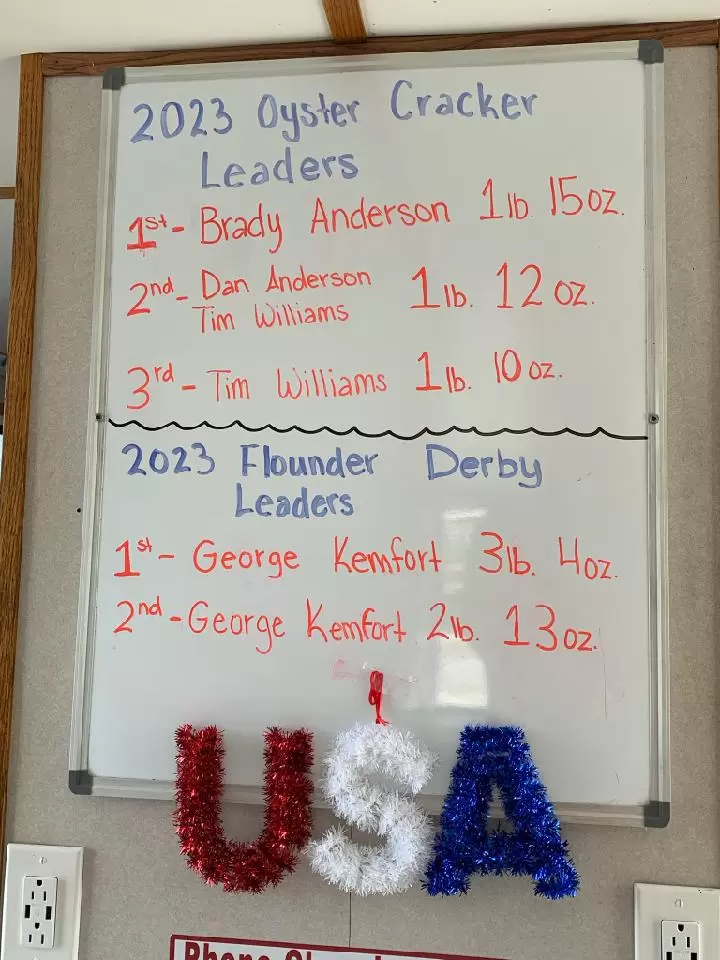 2023 Oyster Cracker
Leaders
1st - Brady Anderson 1 lb. 15 oz.
2nd - Dan Anderson 1 lb. 12 oz.
Tim Williams
3rd - Tim Williams 1 lb. 10 oz.
2023 Flounder Derby
Leaders
1st - George Kemfort 3 lb. 4 oz.
2nd - George Kemfort 2 lb. 13 oz.
USA
Phone